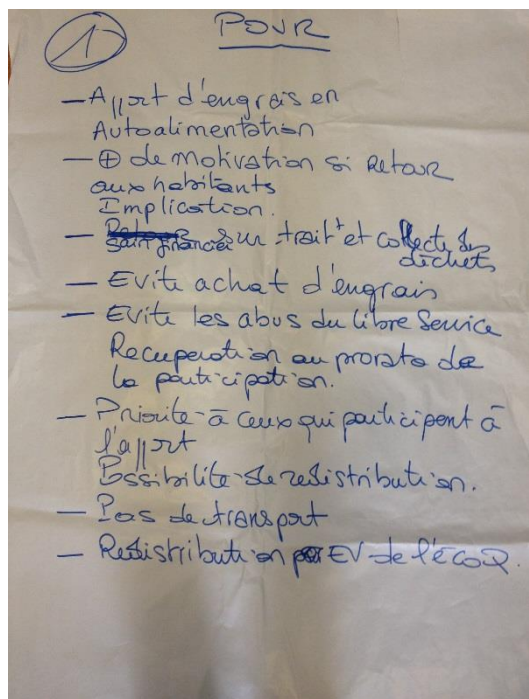 1
POUR
— Apport d'engrais en
Autoalimentation
— ⊕ de motivation si Retour
aux habitants
Implication.
— gain financier sur trait^t et collecte des
déchets
— Evite achat d'engrais
— Evite les abus du libre Service
Recuperation au prorata de
la participation.
— Priorité à ceux qui participent à
l'apport
Possibilité de redistribution.
— Pas de transport
— Redistribution EV de l'écoQ.